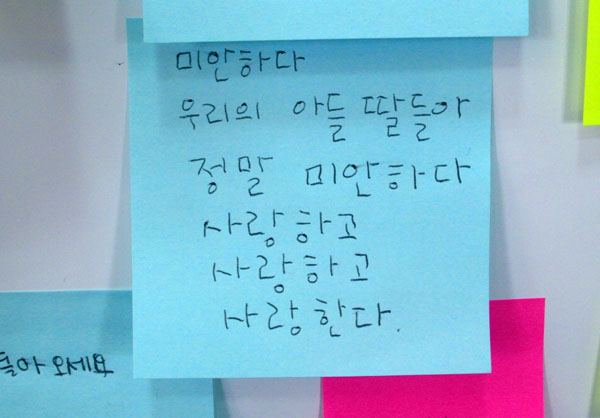 미안하다
우리의 아들 딸들아
정말 미안하다
사랑하고
사랑하고
사랑한다.
돌아 오세요